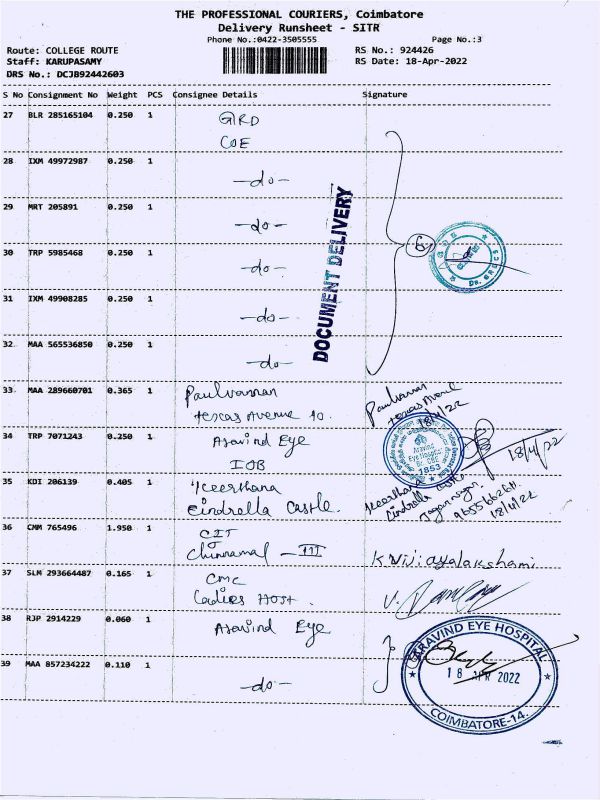 THE PROFESSIONAL COURIERS, Coimbatore
Delivery Runsheet - SITR
Phone No.:0422-3505555 Page No.:3
Route: COLLEGE ROUTE RS No.: 924426
Staff: KARUPASAMY RS Date: 18-Apr-2022
DRS No.: DCJB92442603
S No Consignment No Weight PCS Consignee Details Signature
27 BLR 285165104 0.250 1 GIRD
COE
28 IXM 49972987 0.250 1 -do-
29 MRT 205891 0.250 1 -do-
DOCUMENT DELIVERY
6
30 TRP 5985468 0.250 1 -do-
31 IXM 49908285 0.250 1 -do-
32 MAA 565536850 0.250 1 -do-
33 MAA 289660701 0.365 1 Paulvannan Paulvannan
texas Avenue texas Avenue
18/4/22
34 TRP 7071243 0.250 1 Aravind Eye 18/4/22
IOB
Aravind
Eye Hospital
1853
35 KDI 206139 0.405 1 Keerthana Keerthana
Cindrella Castle. Cindrella Castle
18/4/22
36 CMM 765496 1.950 1 CIT
Chinnamal - III K. Vijayalakshami
37 SLM 293664487 0.165 1 CMC
Ladies Host.
38 RJP 2914229 0.060 1 Aravind Eye
ARAVIND EYE HOSPITAL
18 APR 2022
COIMBATORE-14.
39 MAA 857234222 0.110 1 -do-